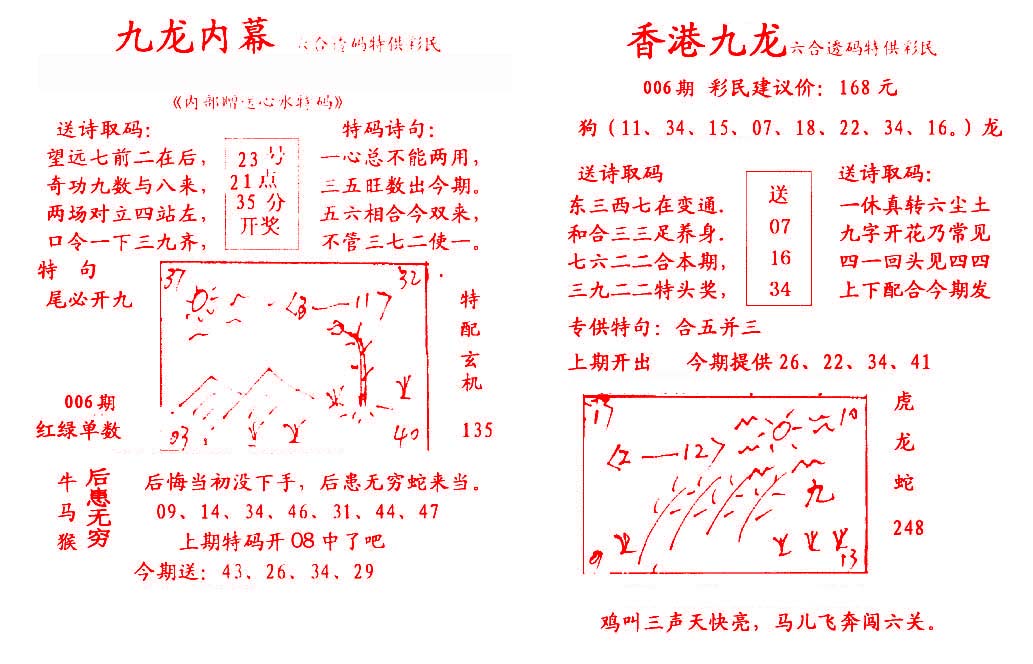 九龙内幕 六合透码特供彩民
《内部赠送心水特码》
送诗取码：
望远七前二在后，
奇功九数与八来，
两场对立四站左，
口令一下三九齐，
23号
21点
35分
开奖
特码诗句：
一心总不能两用，
三五旺数出今期。
五六相合今双来，
不管三七二使一。
特 句
尾必开九
37
32
《3——11》
93
40
特配玄机
135
006期
红绿单数
牛
马
猴
后患无穷
后悔当初没下手，后患无穷蛇来当。
09、14、34、46、31、44、47
上期特码开08中了吧
今期送：43、26、34、29
香港九龙 六合透码特供彩民
006期 彩民建议价：168元
狗（11、34、15、07、18、22、34、16。）龙
送诗取码
东三西七在变通.
和合三三足养身.
七六二二合本期，
三九二二特头奖，
送
07
16
34
送诗取码：
一休真转六尘土
九字开花乃常见
四一回头见四四
上下配合今期发
专供特句：合五并三
上期开出 今期提供26、22、34、41
13
10
《2——12》
九
9
13
虎
龙
蛇
248
鸡叫三声天快亮，马儿飞奔闯六关。